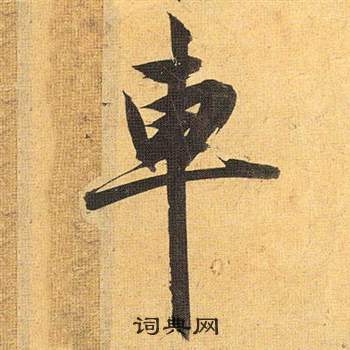 車
词典网